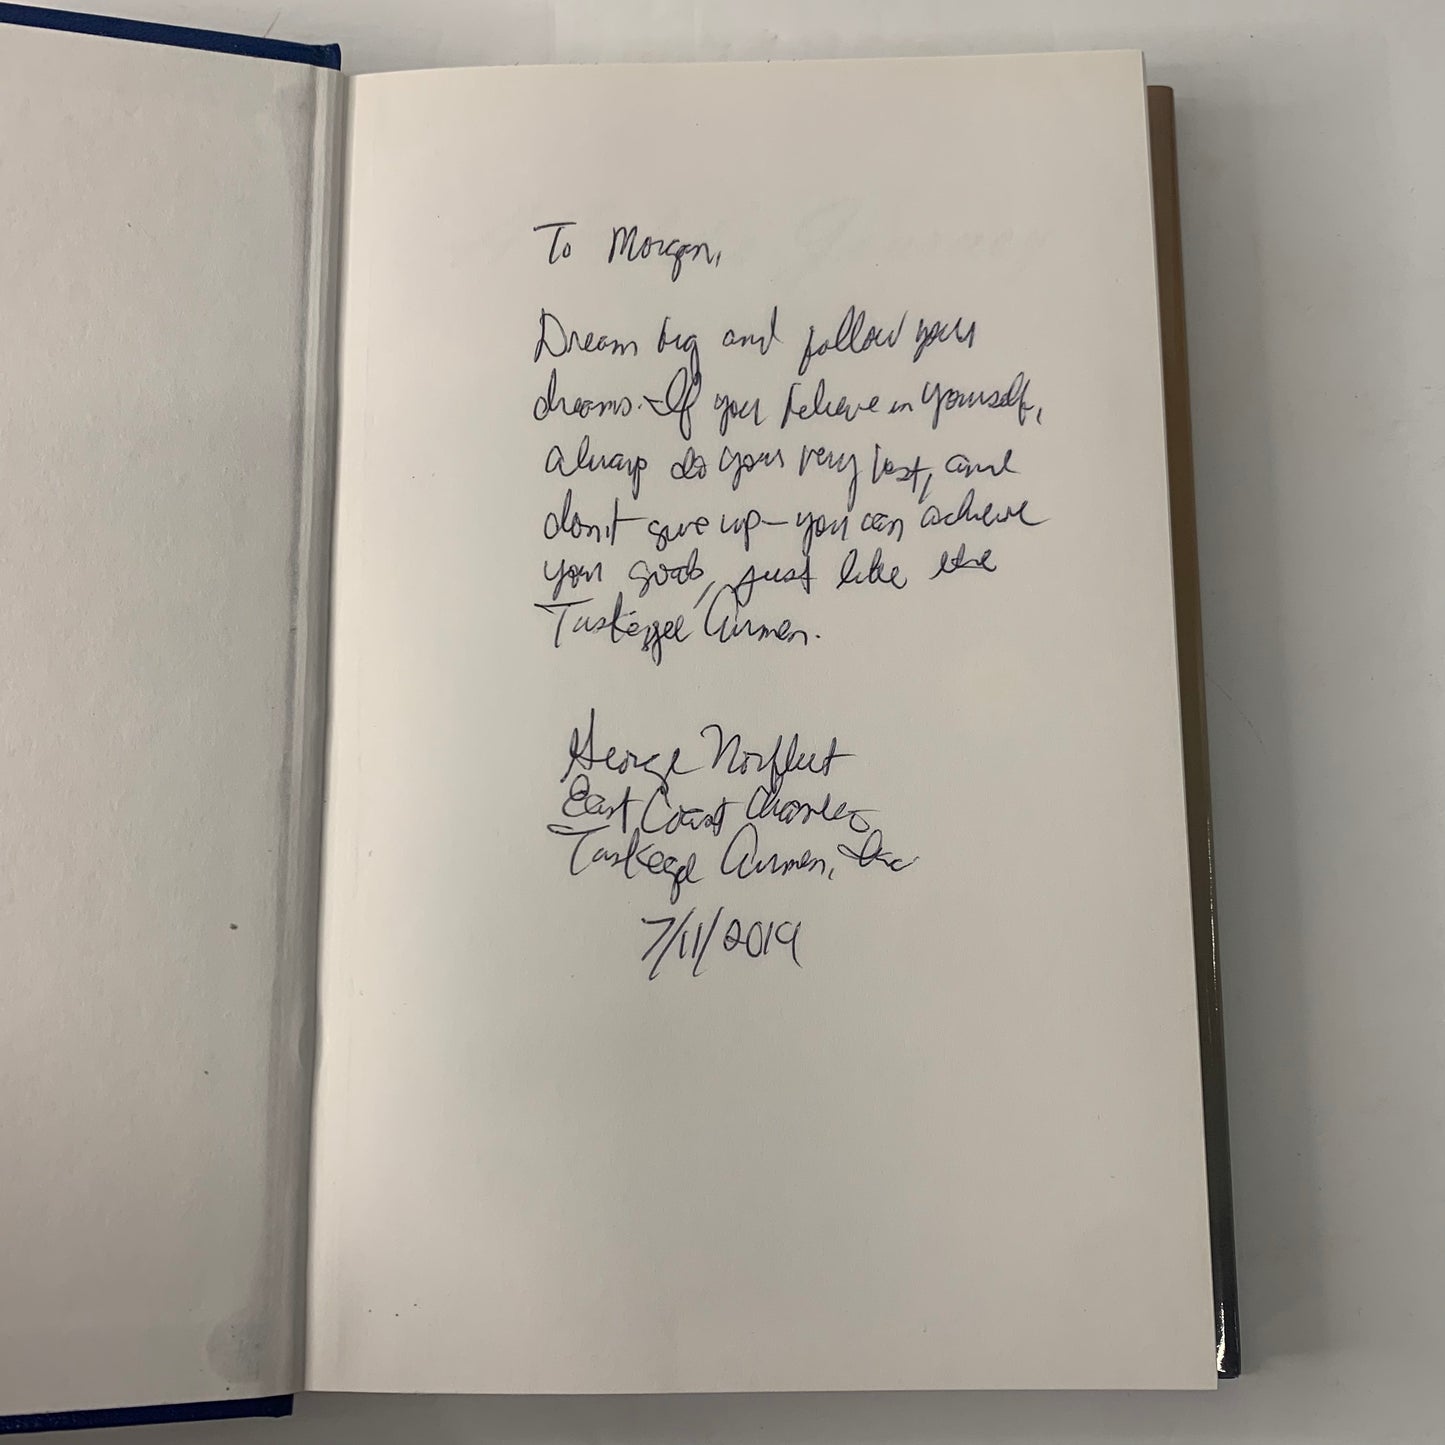 To Morgan,
Dream big and follow your
dreams. If you believe in yourself,
always do your very best, and
don't give up - you can achieve
your goals, just like the
Tuskegee Airmen.
George Norfleet
East Coast Chapter
Tuskegee Airmen, Inc
7/11/2019